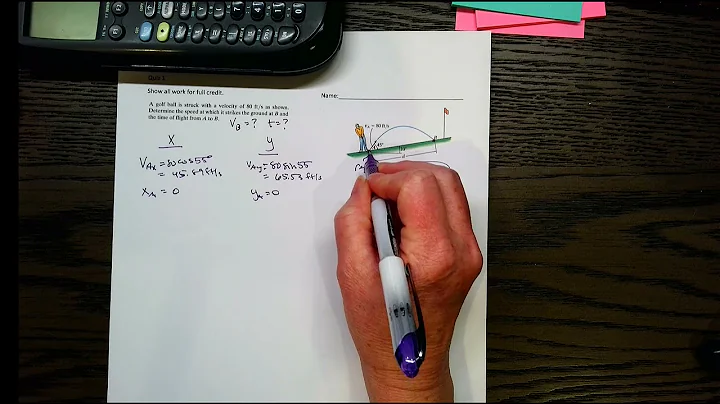 Quiz 1
Show all work for full credit.
Name:
A golf ball is struck with a velocity of 80 ft/s as shown.
Determine the speed at which it strikes the ground at B and
the time of flight from A to B.
V_B = ? t = ?
X
y
V_Ax = 80 cos 55°
= 45.89 ft/s
X_A = 0
V_Ay = 80 sin 55
= 65.53 ft/s
y_A = 0
v_A = 80 ft/s
B
45°
10°
d